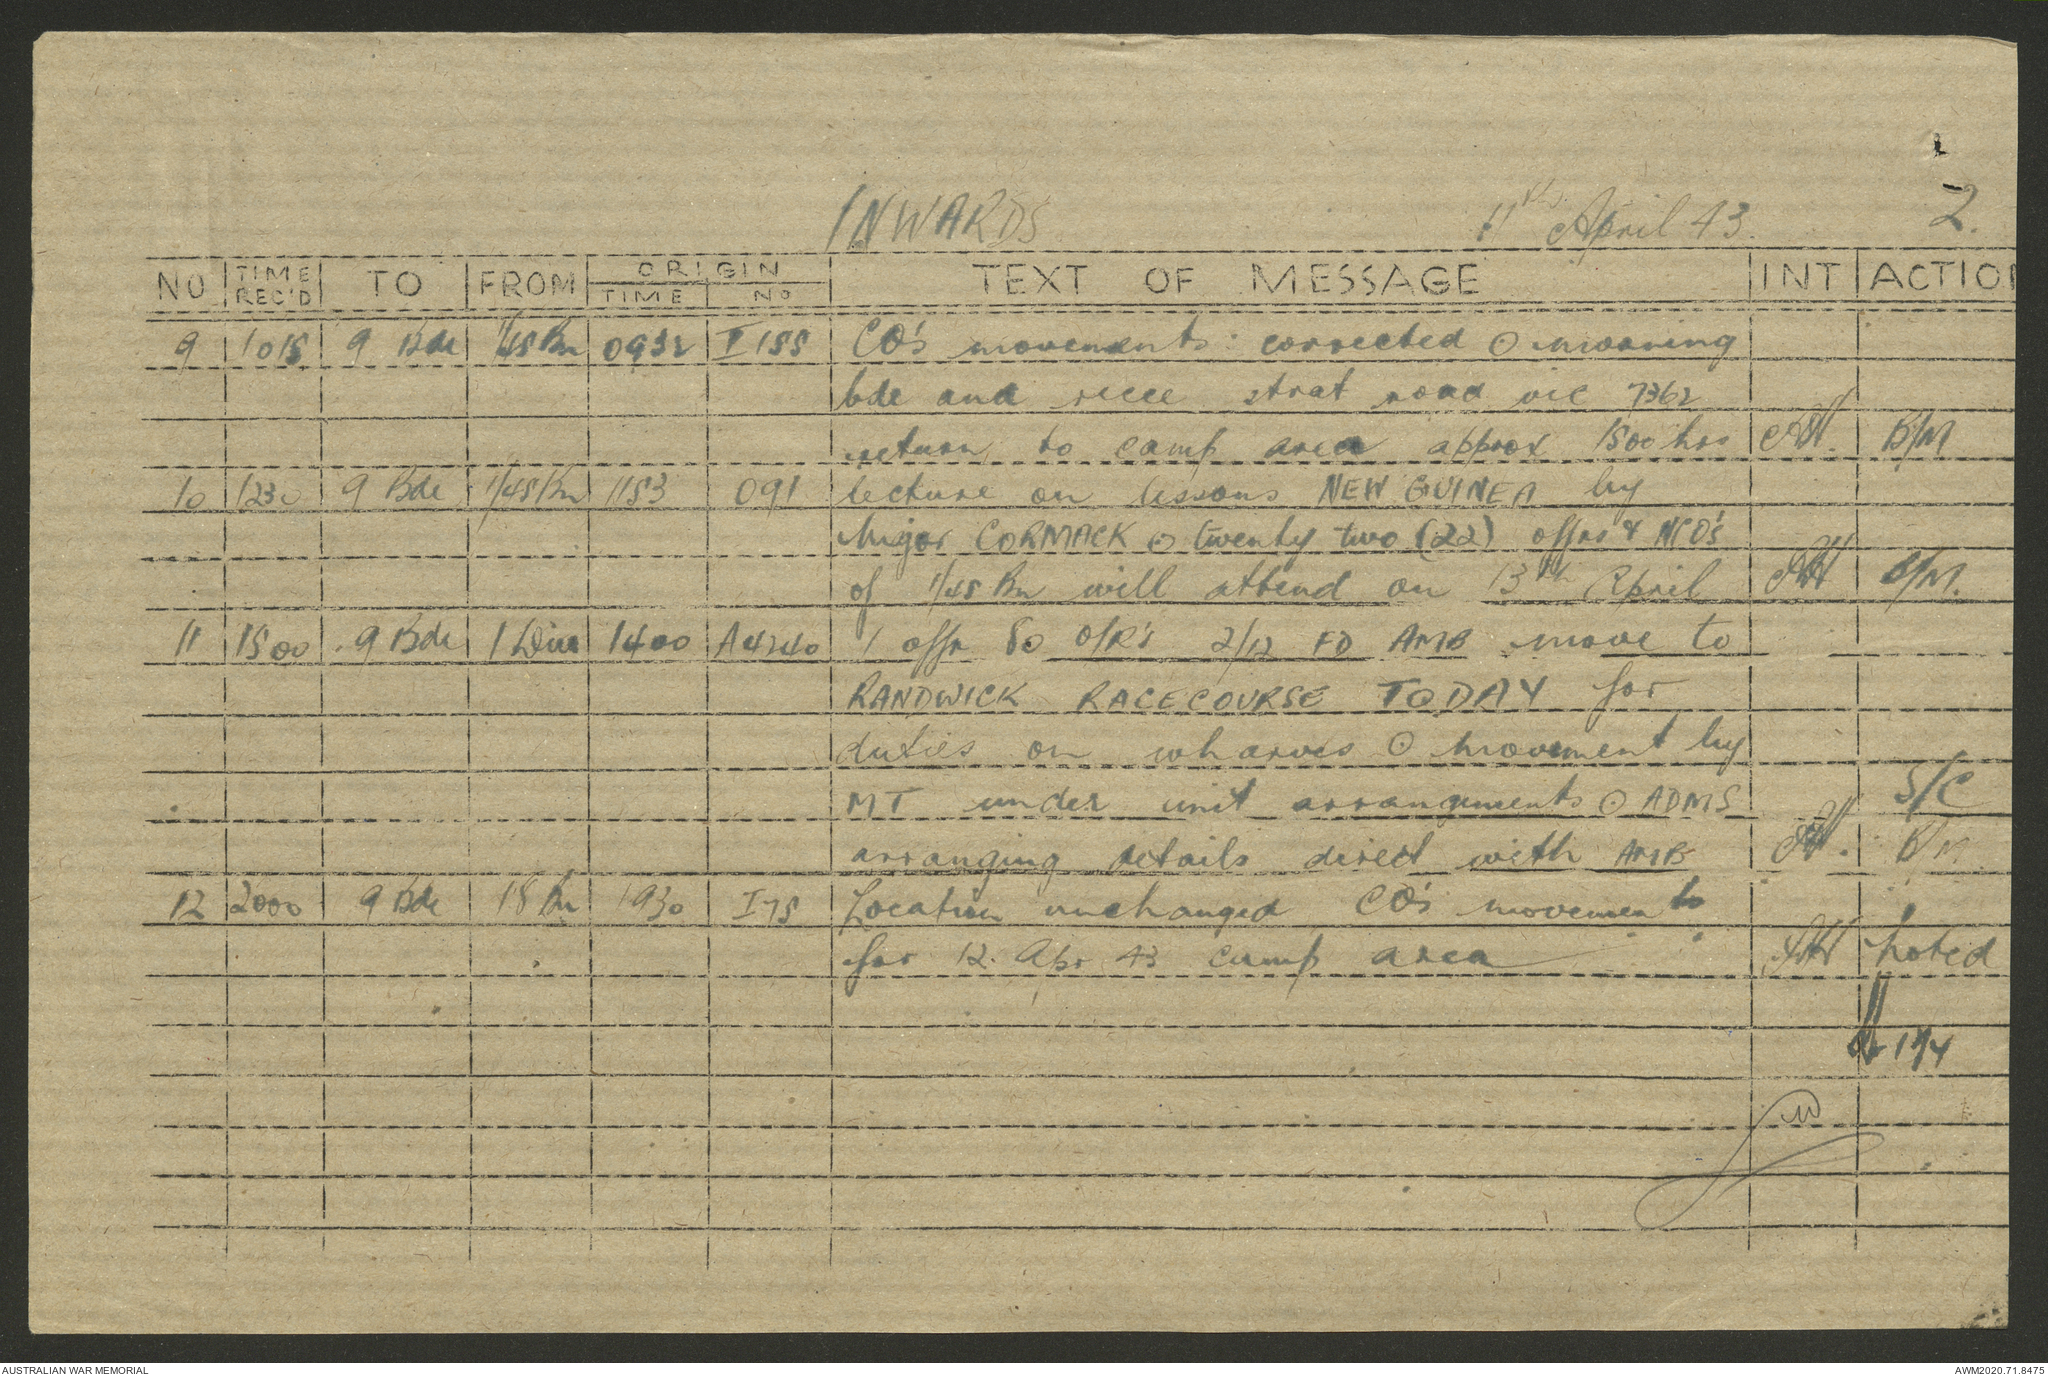 2.
INWARDS 11th April 43.
NO TIME REC'D TO FROM ORIGIN TIME NO TEXT OF MESSAGE INT ACTION
9 1015 9 Bde 1/45 Bn 0932 I 155 CO's movements: corrected ⊙ morning
bde and recce strat road vic 7362
return to camp area approx 1500 hrs B/M
10 1230 9 Bde 1/45 Bn 1153 091 lecture on lessons NEW GUINEA by
Major CORMACK ⊙ twenty two (22) offrs & NCO's
of 1/45 Bn will attend on 13th April B/M.
11 1500 9 Bde 1 Div 1400 A4240 1 offr 80 O/R's 2/12 FD AMB move to
RANDWICK RACECOURSE TODAY for
duties on wharves ⊙ movement by
MT under unit arrangements ⊙ ADMS S/C
arranging details direct with AMB B/M
12 2000 9 Bde 18 Bn 1930 I75 Location unchanged CO's movements
for 12 Apr 43 camp area noted
AUSTRALIAN WAR MEMORIAL AWM2020.71.8475